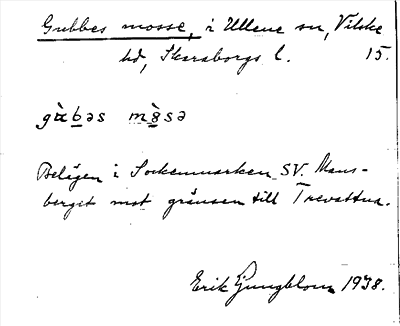 Gubbes mosse, i Ullene sn, Vilske
hd, Skaraborgs l. 15.
gὰbəs mὸsə
Belägen i Sockenmarken SV. Mans-
berget mot gränsen till Trevattna.
Erik Ljungblom 1938.